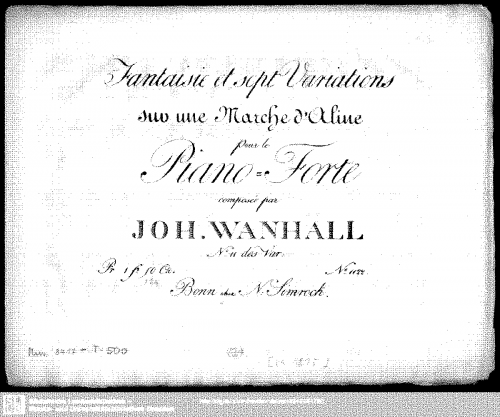 Fantaisie et sept Variations
sur une Marche d'Aline
pour le
Piano=Forte
composée par
JOH. WANHALL
No. 11 des Var.
Pr. 1 fr 50 Cs.
Bonn chez N. Simrock.